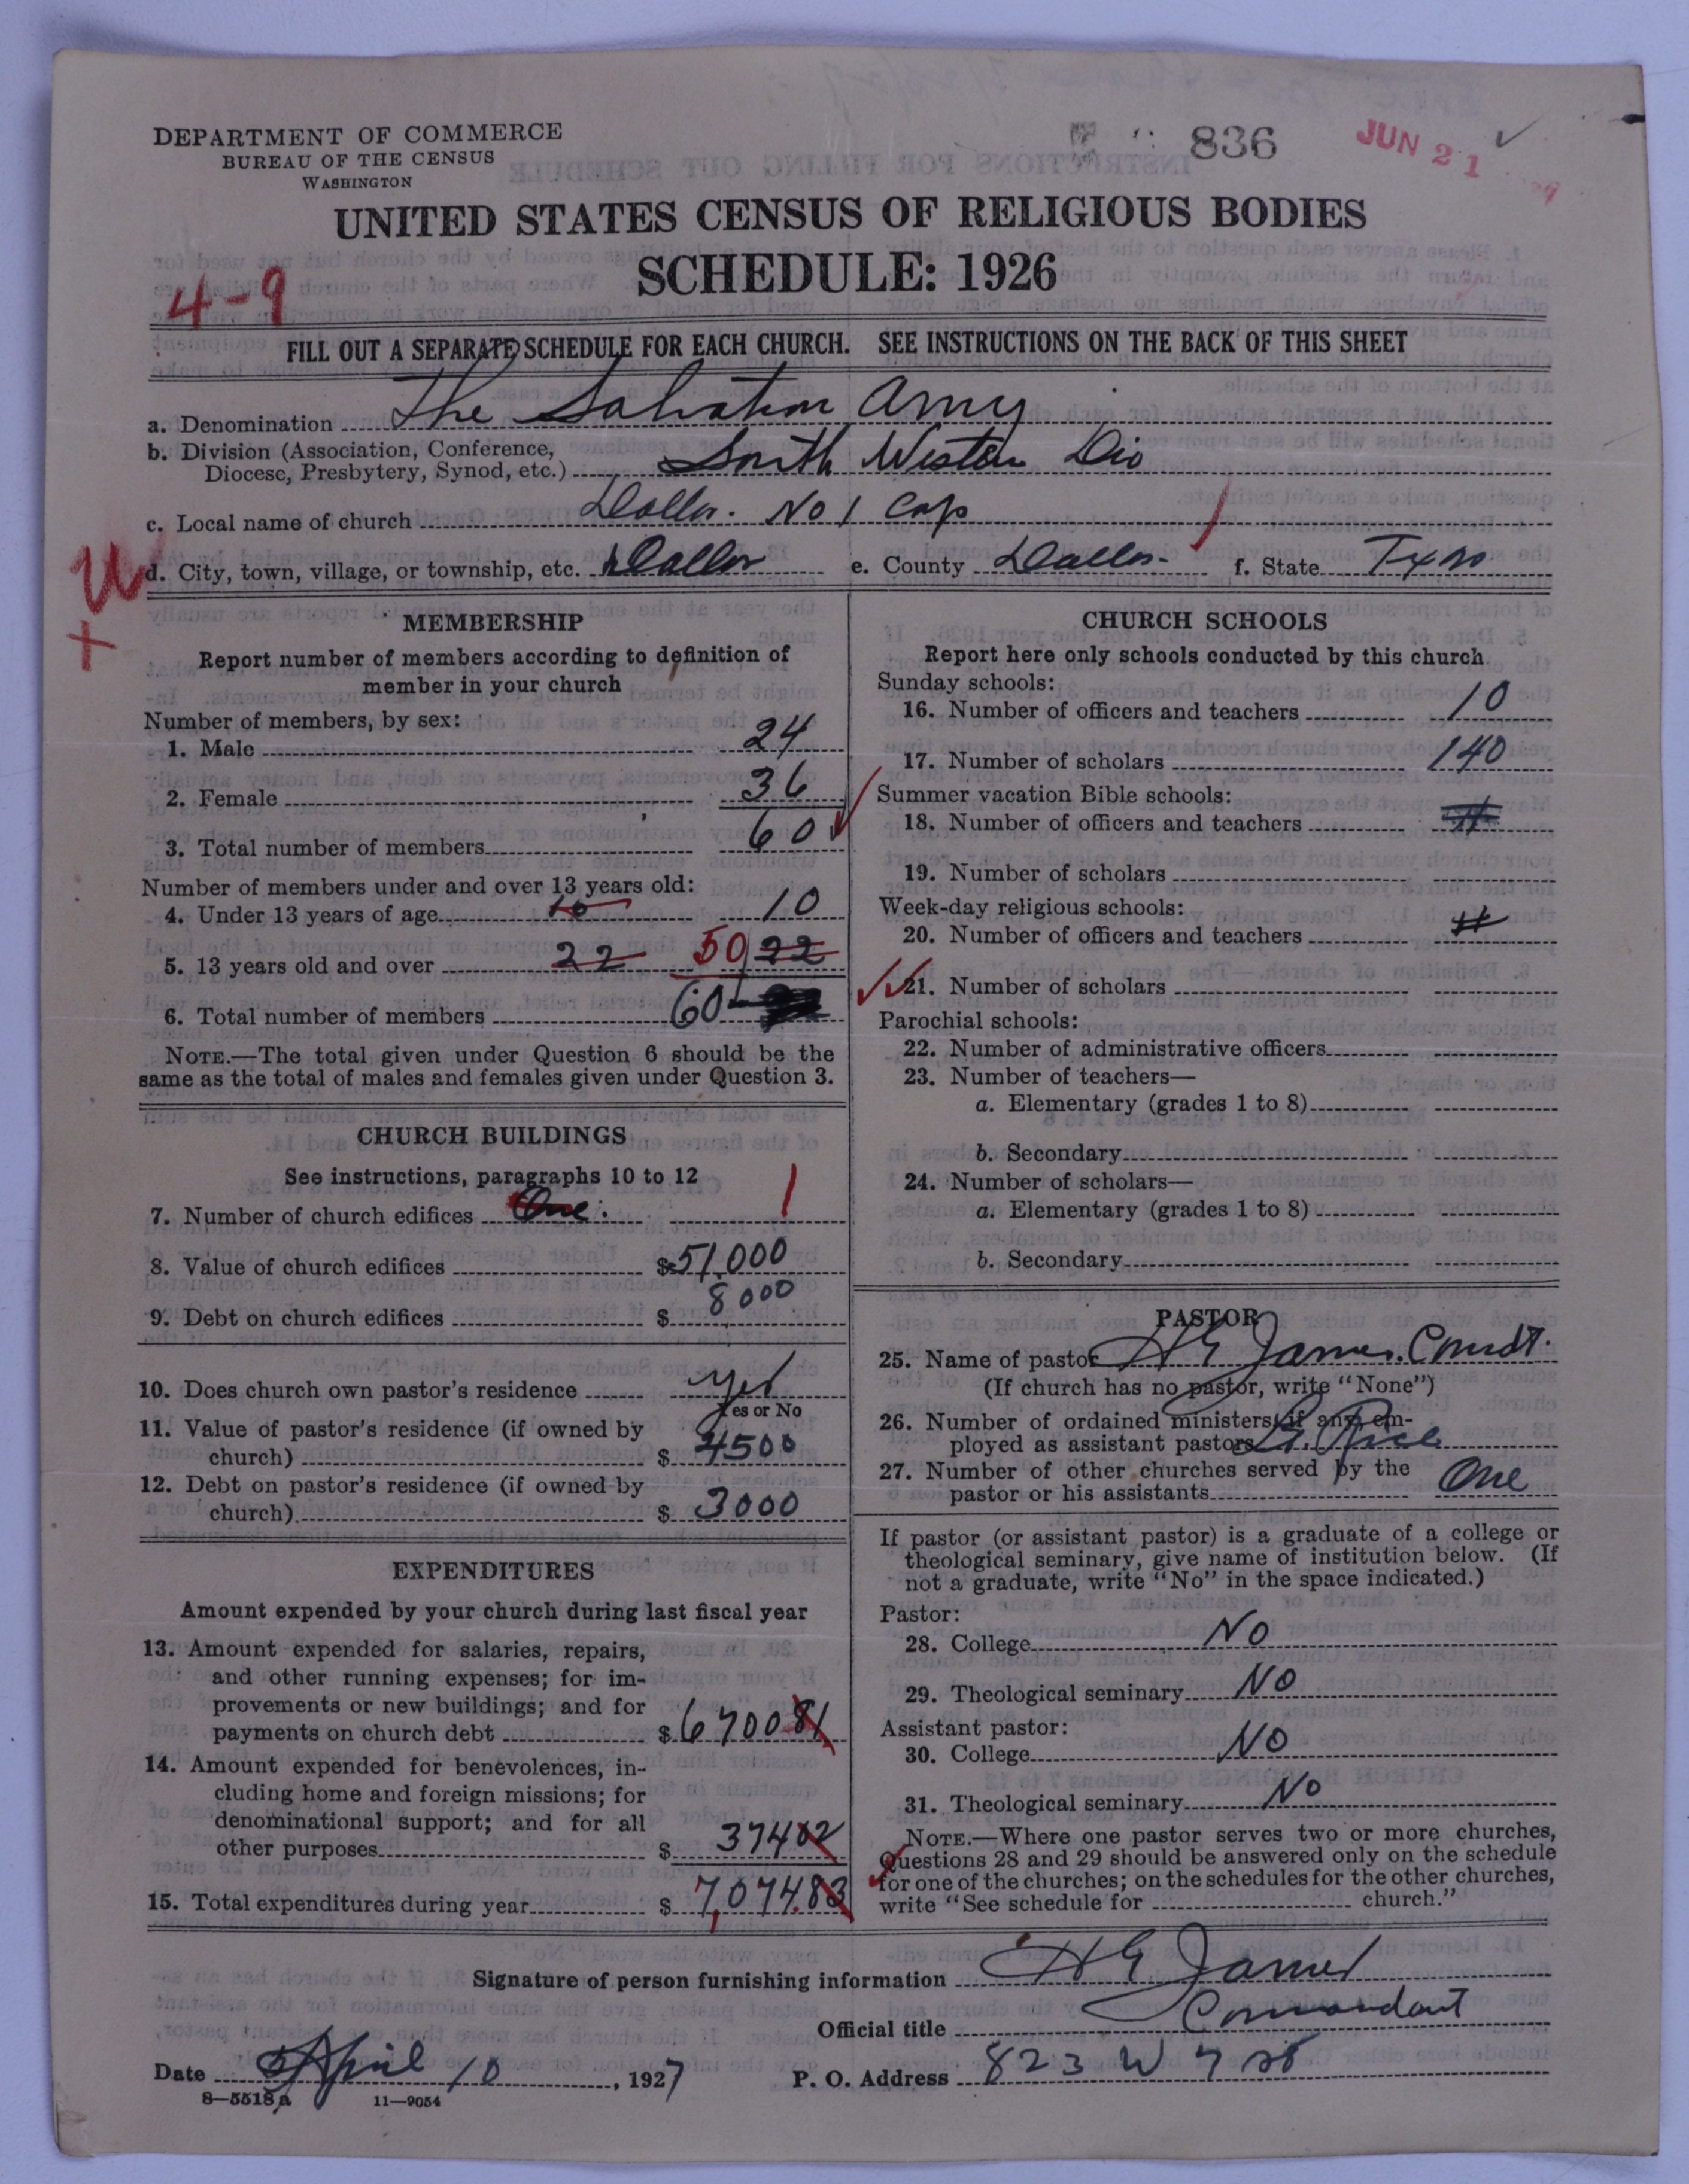 DEPARTMENT OF COMMERCE
BUREAU OF THE CENSUS
WASHINGTON
836
JUN 21
UNITED STATES CENSUS OF RELIGIOUS BODIES
SCHEDULE: 1926
4-9
FILL OUT A SEPARATE SCHEDULE FOR EACH CHURCH. SEE INSTRUCTIONS ON THE BACK OF THIS SHEET
a. Denomination The Salvation Army
b. Division (Association, Conference,
Diocese, Presbytery, Synod, etc.) South Western Div
c. Local name of church Dallas. No 1 Corp
d. City, town, village, or township, etc. Dallas e. County Dallas. f. State Texas
MEMBERSHIP
Report number of members according to definition of
member in your church
Number of members, by sex:
1. Male 24
2. Female 36
3. Total number of members 60
Number of members under and over 13 years old:
4. Under 13 years of age 10 10
5. 13 years old and over 22 50 22
6. Total number of members 60
NOTE.—The total given under Question 6 should be the
same as the total of males and females given under Question 3.
CHURCH BUILDINGS
See instructions, paragraphs 10 to 12
7. Number of church edifices One. 1
8. Value of church edifices $51,000
9. Debt on church edifices $ 8000
10. Does church own pastor's residence yes
Yes or No
11. Value of pastor's residence (if owned by
church) $ 4500
12. Debt on pastor's residence (if owned by
church) $ 3000
EXPENDITURES
Amount expended by your church during last fiscal year
13. Amount expended for salaries, repairs,
and other running expenses; for im-
provements or new buildings; and for
payments on church debt $ 6700 81
14. Amount expended for benevolences, in-
cluding home and foreign missions; for
denominational support; and for all
other purposes $ 374 02
15. Total expenditures during year $ 7,074.83
CHURCH SCHOOLS
Report here only schools conducted by this church
Sunday schools:
16. Number of officers and teachers 10
17. Number of scholars 140
Summer vacation Bible schools:
18. Number of officers and teachers
19. Number of scholars
Week-day religious schools:
20. Number of officers and teachers
21. Number of scholars
Parochial schools:
22. Number of administrative officers
23. Number of teachers—
a. Elementary (grades 1 to 8)
b. Secondary
24. Number of scholars—
a. Elementary (grades 1 to 8)
b. Secondary
PASTOR
25. Name of pastor H G James. Comdt.
(If church has no pastor, write "None")
26. Number of ordained ministers, if any, em-
ployed as assistant pastors Rice
27. Number of other churches served by the
pastor or his assistants One
If pastor (or assistant pastor) is a graduate of a college or
theological seminary, give name of institution below. (If
not a graduate, write "No" in the space indicated.)
Pastor:
28. College No
29. Theological seminary No
Assistant pastor:
30. College No
31. Theological seminary No
NOTE.—Where one pastor serves two or more churches,
Questions 28 and 29 should be answered only on the schedule
for one of the churches; on the schedules for the other churches,
write "See schedule for church."
Signature of person furnishing information H G James
Official title Commandant
Date April 10, 1927 P. O. Address 823 W 7 St
8—5518a 11—9054